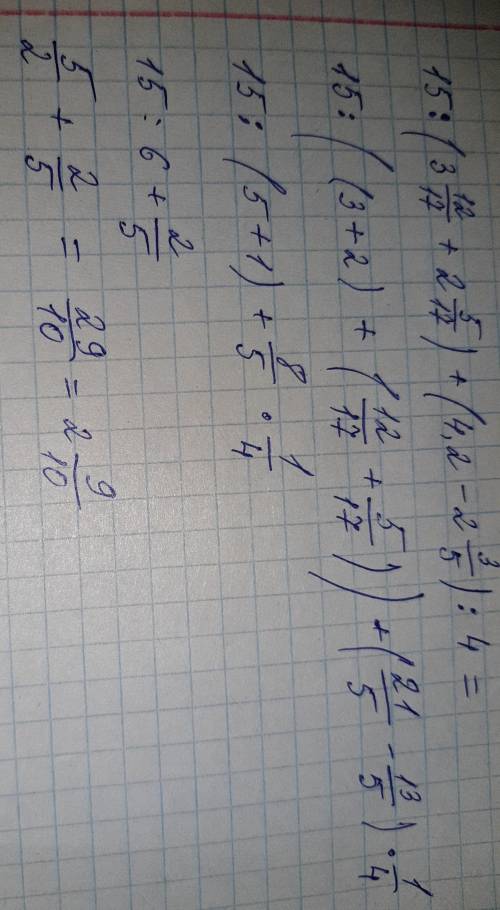 15 : (3 12/17 + 2 5/17) + (4,2 - 2 3/5) : 4 =
15 : ((3 + 2) + (12/17 + 5/17)) + (21/5 - 13/5) · 1/4
15 : (5 + 1) + 8/5 · 1/4
15 : 6 + 2/5
5/2 + 2/5 = 29/10 = 2 9/10